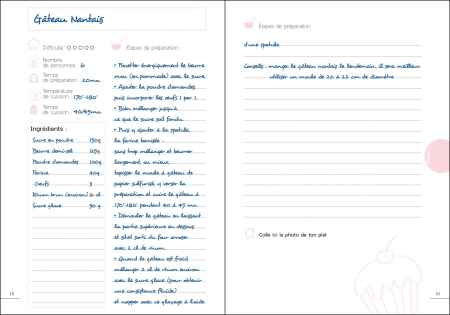 Gâteau Nantais
Difficulté
Nombre
de personnes 6
Temps
de préparation 20mn
Température
de cuisson 170°-180°
Temps
de cuisson 40/45mn
Ingrédients :
Sucre en poudre 150g
Beurre demi sel 125g
Poudre d'amandes 100g
Farine 40g
Oeufs 3
Rhum brun (environ) 6 cl
Sucre glace 50 g
Étapes de préparation :
• Fouetter énergiquement le beurre
mou (en pommade) avec le sucre
• Ajouter la poudre d'amandes
puis incorporer les oeufs 1 par 1
• Bien mélanger jusqu'à
ce que le sucre soit fondu
• Puis y ajouter à la spatule,
la farine tamisée :
sans trop mélanger et beurrer
largement, ou mieux,
tapisser le moule à gâteau de
papier sulfurisé, y verser la
préparation et cuire le gâteau à
170°-180° pendant 40 à 45 mn.
• Démouler le gâteau en laissant
la partie supérieure en dessous
et sitôt sorti du four arroser
avec 2 cl de rhum.
• Quand le gâteau est froid,
mélanger 2 cl de rhum environ
avec le sucre glace (pour obtenir
une consistance fluide)
et napper avec ce glaçage à l'aide
Étapes de préparation :
d'une spatule.
Conseils : manger le gâteau nantais le lendemain, il sera meilleur
utiliser un moule de 20 à 22 cm de diamètre
Colle ici la photo de ton plat